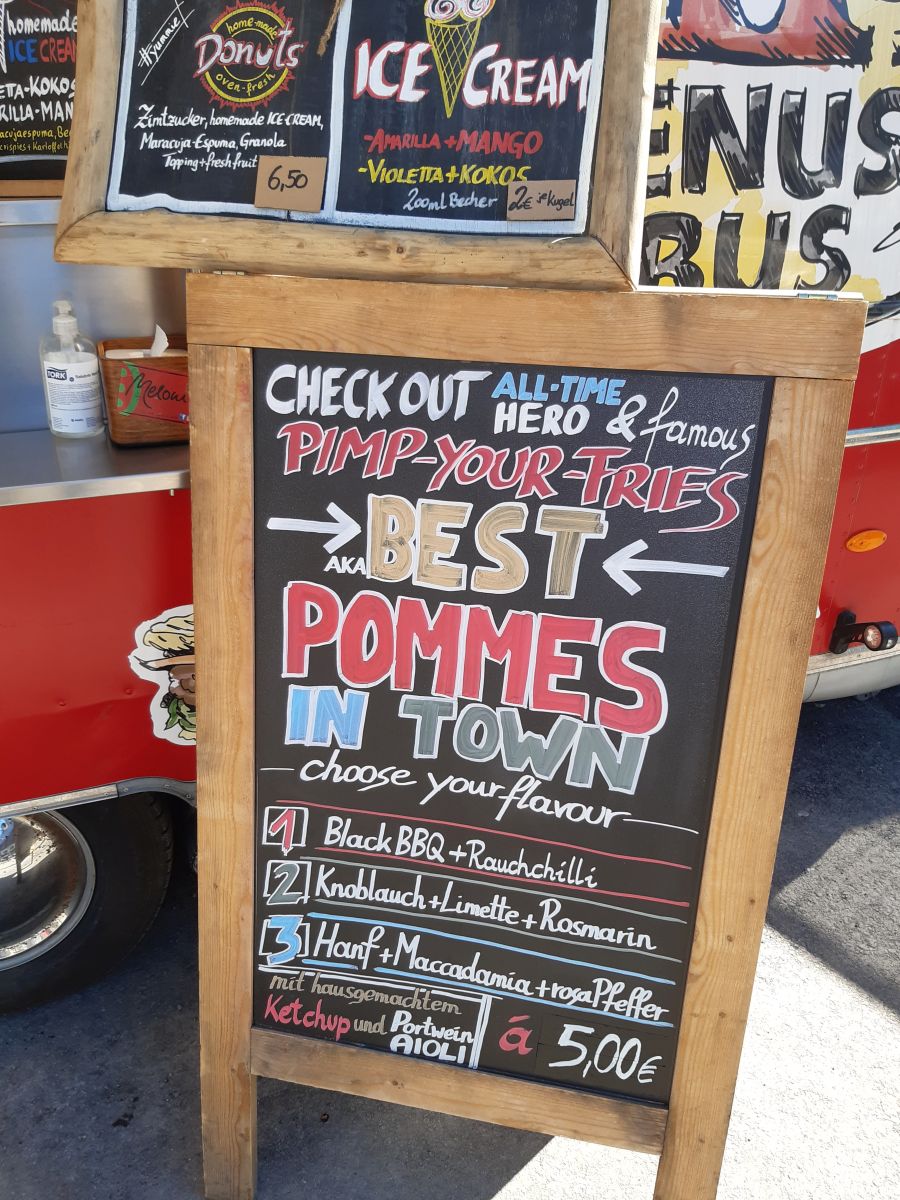 homemade
ICE CREAM
#yummie
home-made
Donuts
oven-fresh
Zimtzucker, homemade ICE-CREAM,
Maracuja-Espuma, Granola
Topping + fresh fruit
6,50
ICE CREAM
-AMARILLA + MANGO
-VIOLETTA + KOKOS
200ml Becher
2€ je Kugel
ENUS
BUS
TORK
Meloni
CHECK OUT ALL-TIME HERO & famous
PIMP-YOUR-FRIES
AKA BEST
POMMES
IN TOWN
choose your flavour
1 Black BBQ + Rauchchilli
2 Knoblauch + Limette + Rosmarin
3 Hanf + Maccadamia + rosa Pfeffer
mit hausgemachtem
Ketchup und Portwein
AIOLI
á 5,00€